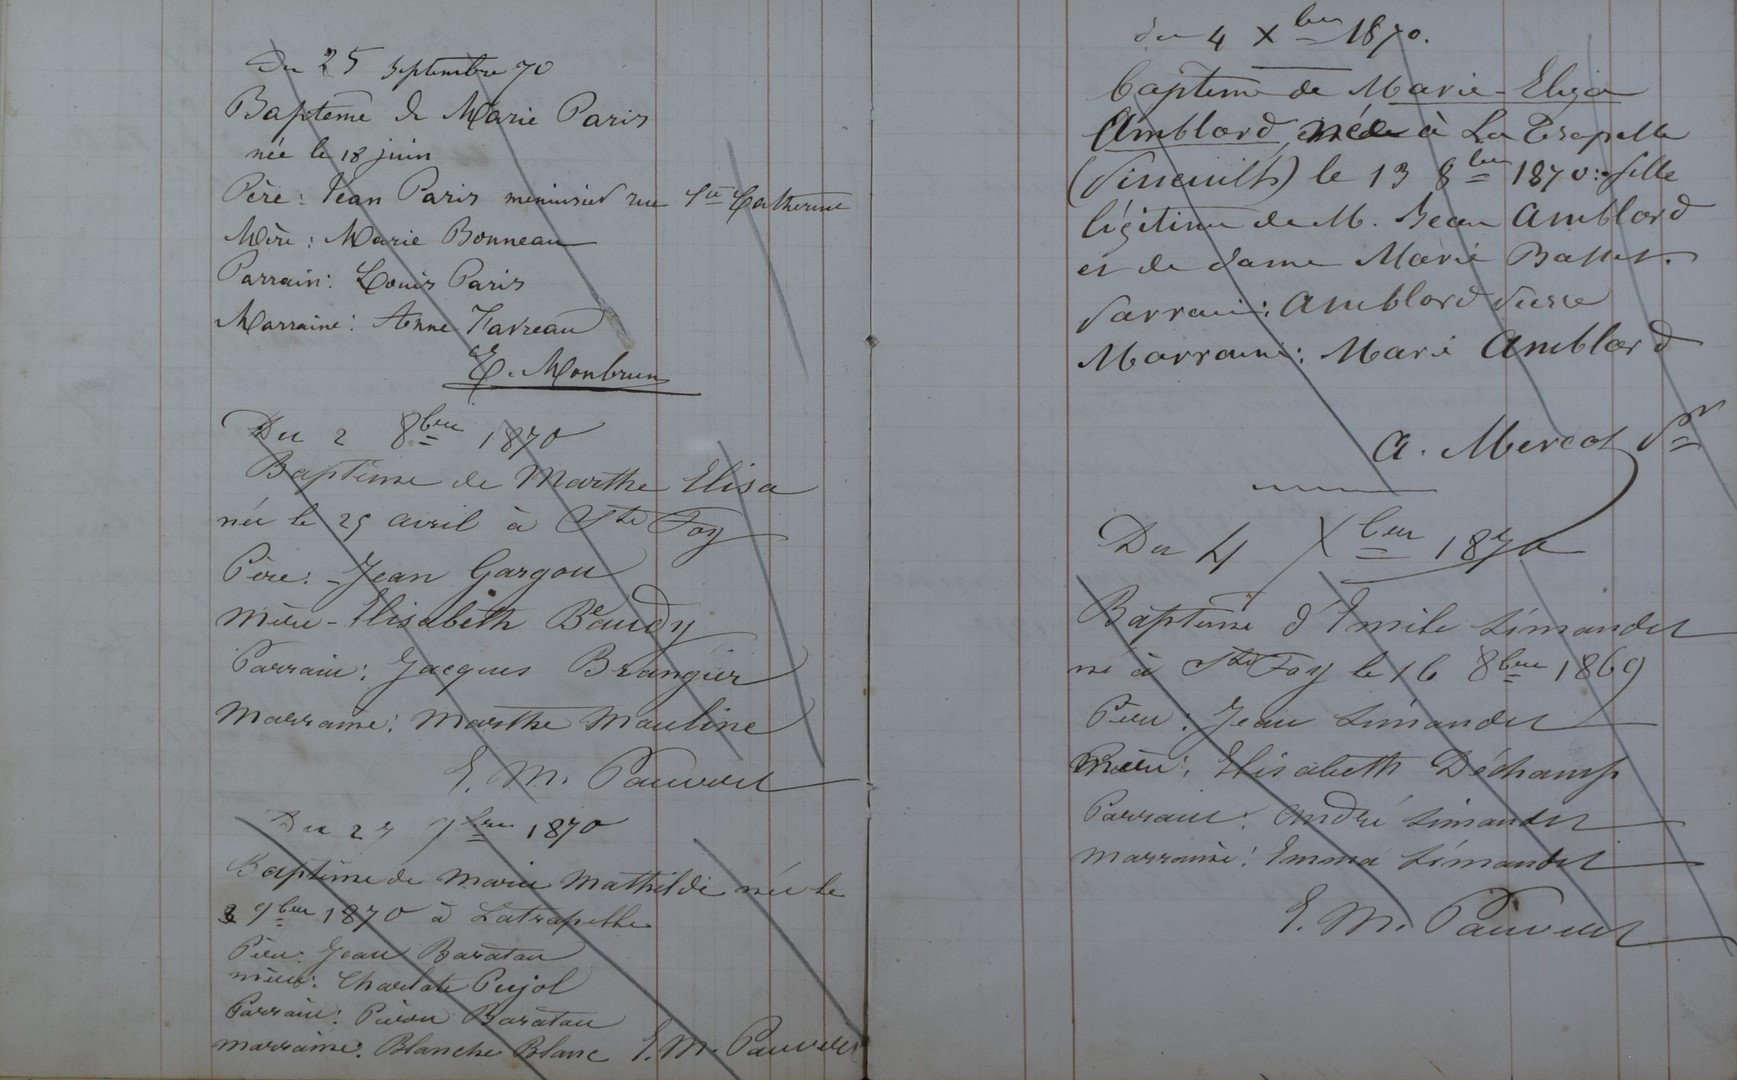 Du 25 Septembre 70
Bapteme de Marie Paris
née le 18 juin
Père: Jean Paris menuisier rue Ste Catherine
Mère: Marie Bonneau
Parrain: Louis Paris
Marraine: Anne Favreau
E. Monbrun
Du 2 8bre 1870
Baptême de Marthe Elisa
née le 25 avril à Ste Foy
Père: Jean Gargou
mère - Elisabeth Beaudy
Parrain: Jacques Brangier
Marraine: Marthe Mauline
E. M. Pauvert
Du 27 9bre 1870
Baptême de Marie Mathilde née le
3 9bre 1870 à Latrapelle
Père: Jean Baratau
mère: Charlote Pujol
Parrain: Baratau
marraine: Blanche Blanc E. M. Pauvert
du 4 Xbre 1870.
Bapteme de Marie-Eliza
Amblard, née à La Trapelle
(Pineuilh) le 13 8bre 1870: fille
légitime de M. Jean Amblard
et de dame Marie Basset.
Parrain: Amblard Pierre
Marraine: Marie Amblard
A. Mercat Pr
Du 4 Xbre 1870
Baptême d'Emile Simandet
né à Ste Foy le 16 8bre 1869
Père: Jean Simandet
Mère: Elisabeth Déchamp
Parrain: André Simandet
marraine: Emma Simandet
E. M. Pauvert